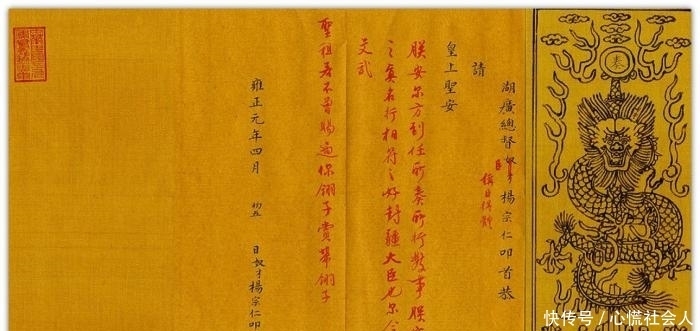 奏
湖廣總督奴才楊宗仁叩首恭
臣
稱臣得體
請
皇上聖安
朕安尔方到任所奏所行數事朕
之真名行相符之好封疆大臣也尔
文武
聖祖若不曾賜過你翎子賞單翎子
雍正元年四月 初五 日奴才楊宗仁叩
快传号／心慌社会人